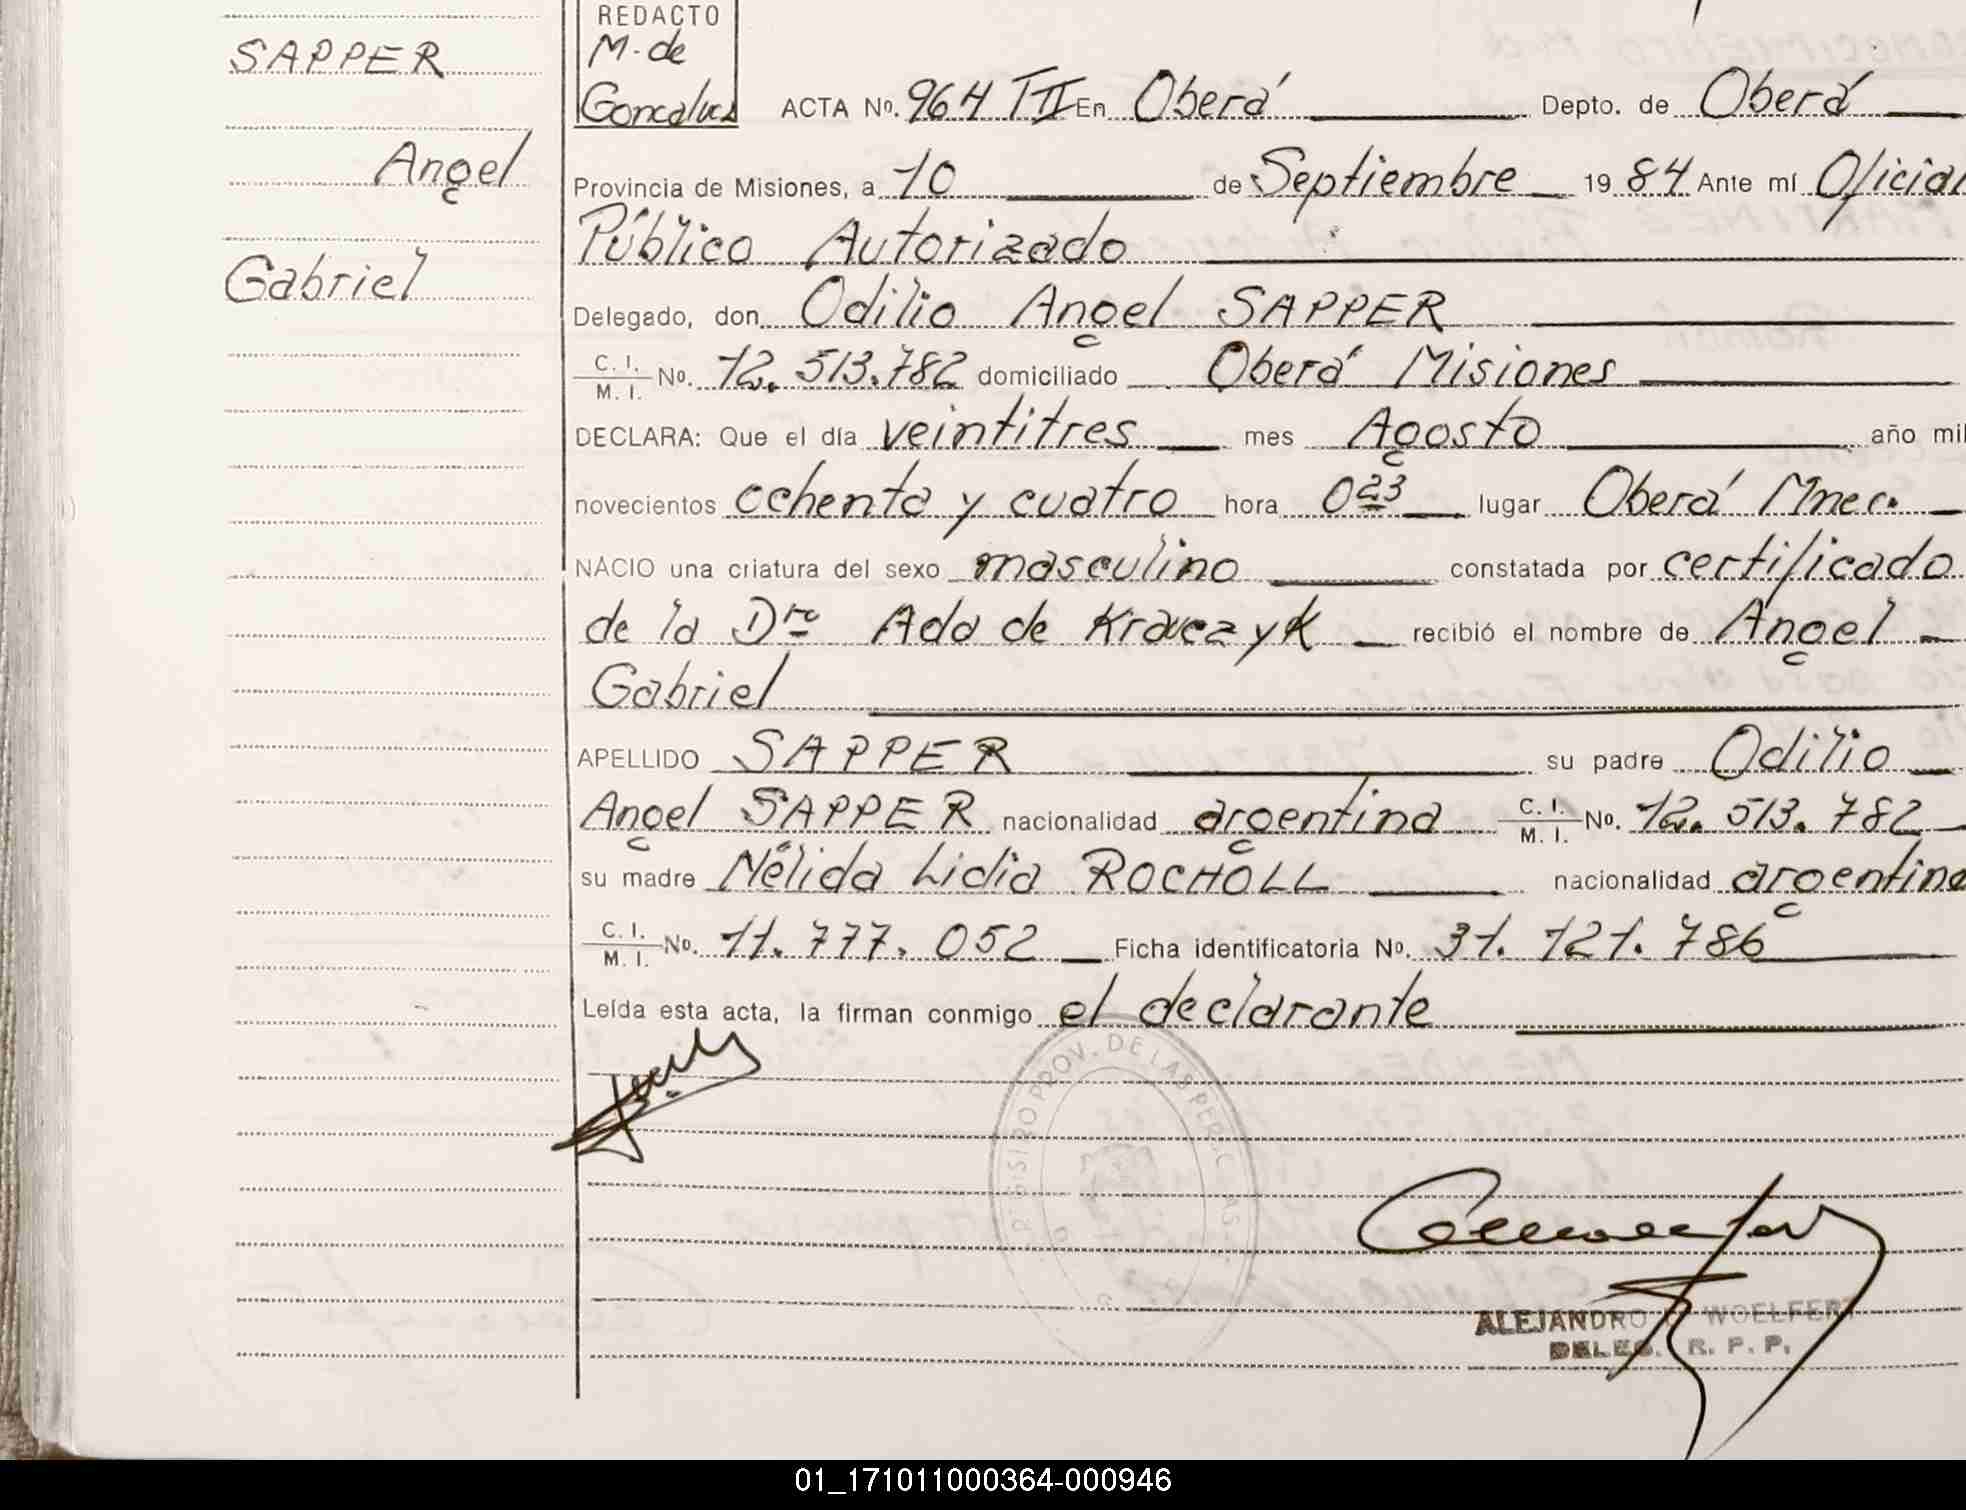 SAPPER
Angel
Gabriel
REDACTO
M. de
Goncalves
ACTA No. 964 TII En Oberá Depto. de Oberá
Provincia de Misiones, a 10 de Septiembre 1984 Ante mí Oficial
Público Autorizado
Delegado, don Odilio Angel SAPPER
C. I. / M. I. No. 12.513.782 domiciliado Oberá Misiones
DECLARA: Que el día veintitres mes Agosto año mil
novecientos ochenta y cuatro hora 0 23 lugar Oberá Mnes.
NACIO una criatura del sexo masculino constatada por certificado
de la Dra Ada de Krawczyk recibió el nombre de Angel
Gabriel
APELLIDO SAPPER su padre Odilio
Angel SAPPER nacionalidad argentina C. I. / M. I. No. 12.513.782
su madre Nélida Lidia ROCHOLL nacionalidad argentina
C. I. / M. I. No. 11.777.052 Ficha identificatoria No. 31.121.786
Leída esta acta, la firman conmigo el declarante
PROV. DE LAS PERSONAS
ALEJANDRO WOELFERT
DELEG. R. P. P.
01_171011000364-000946